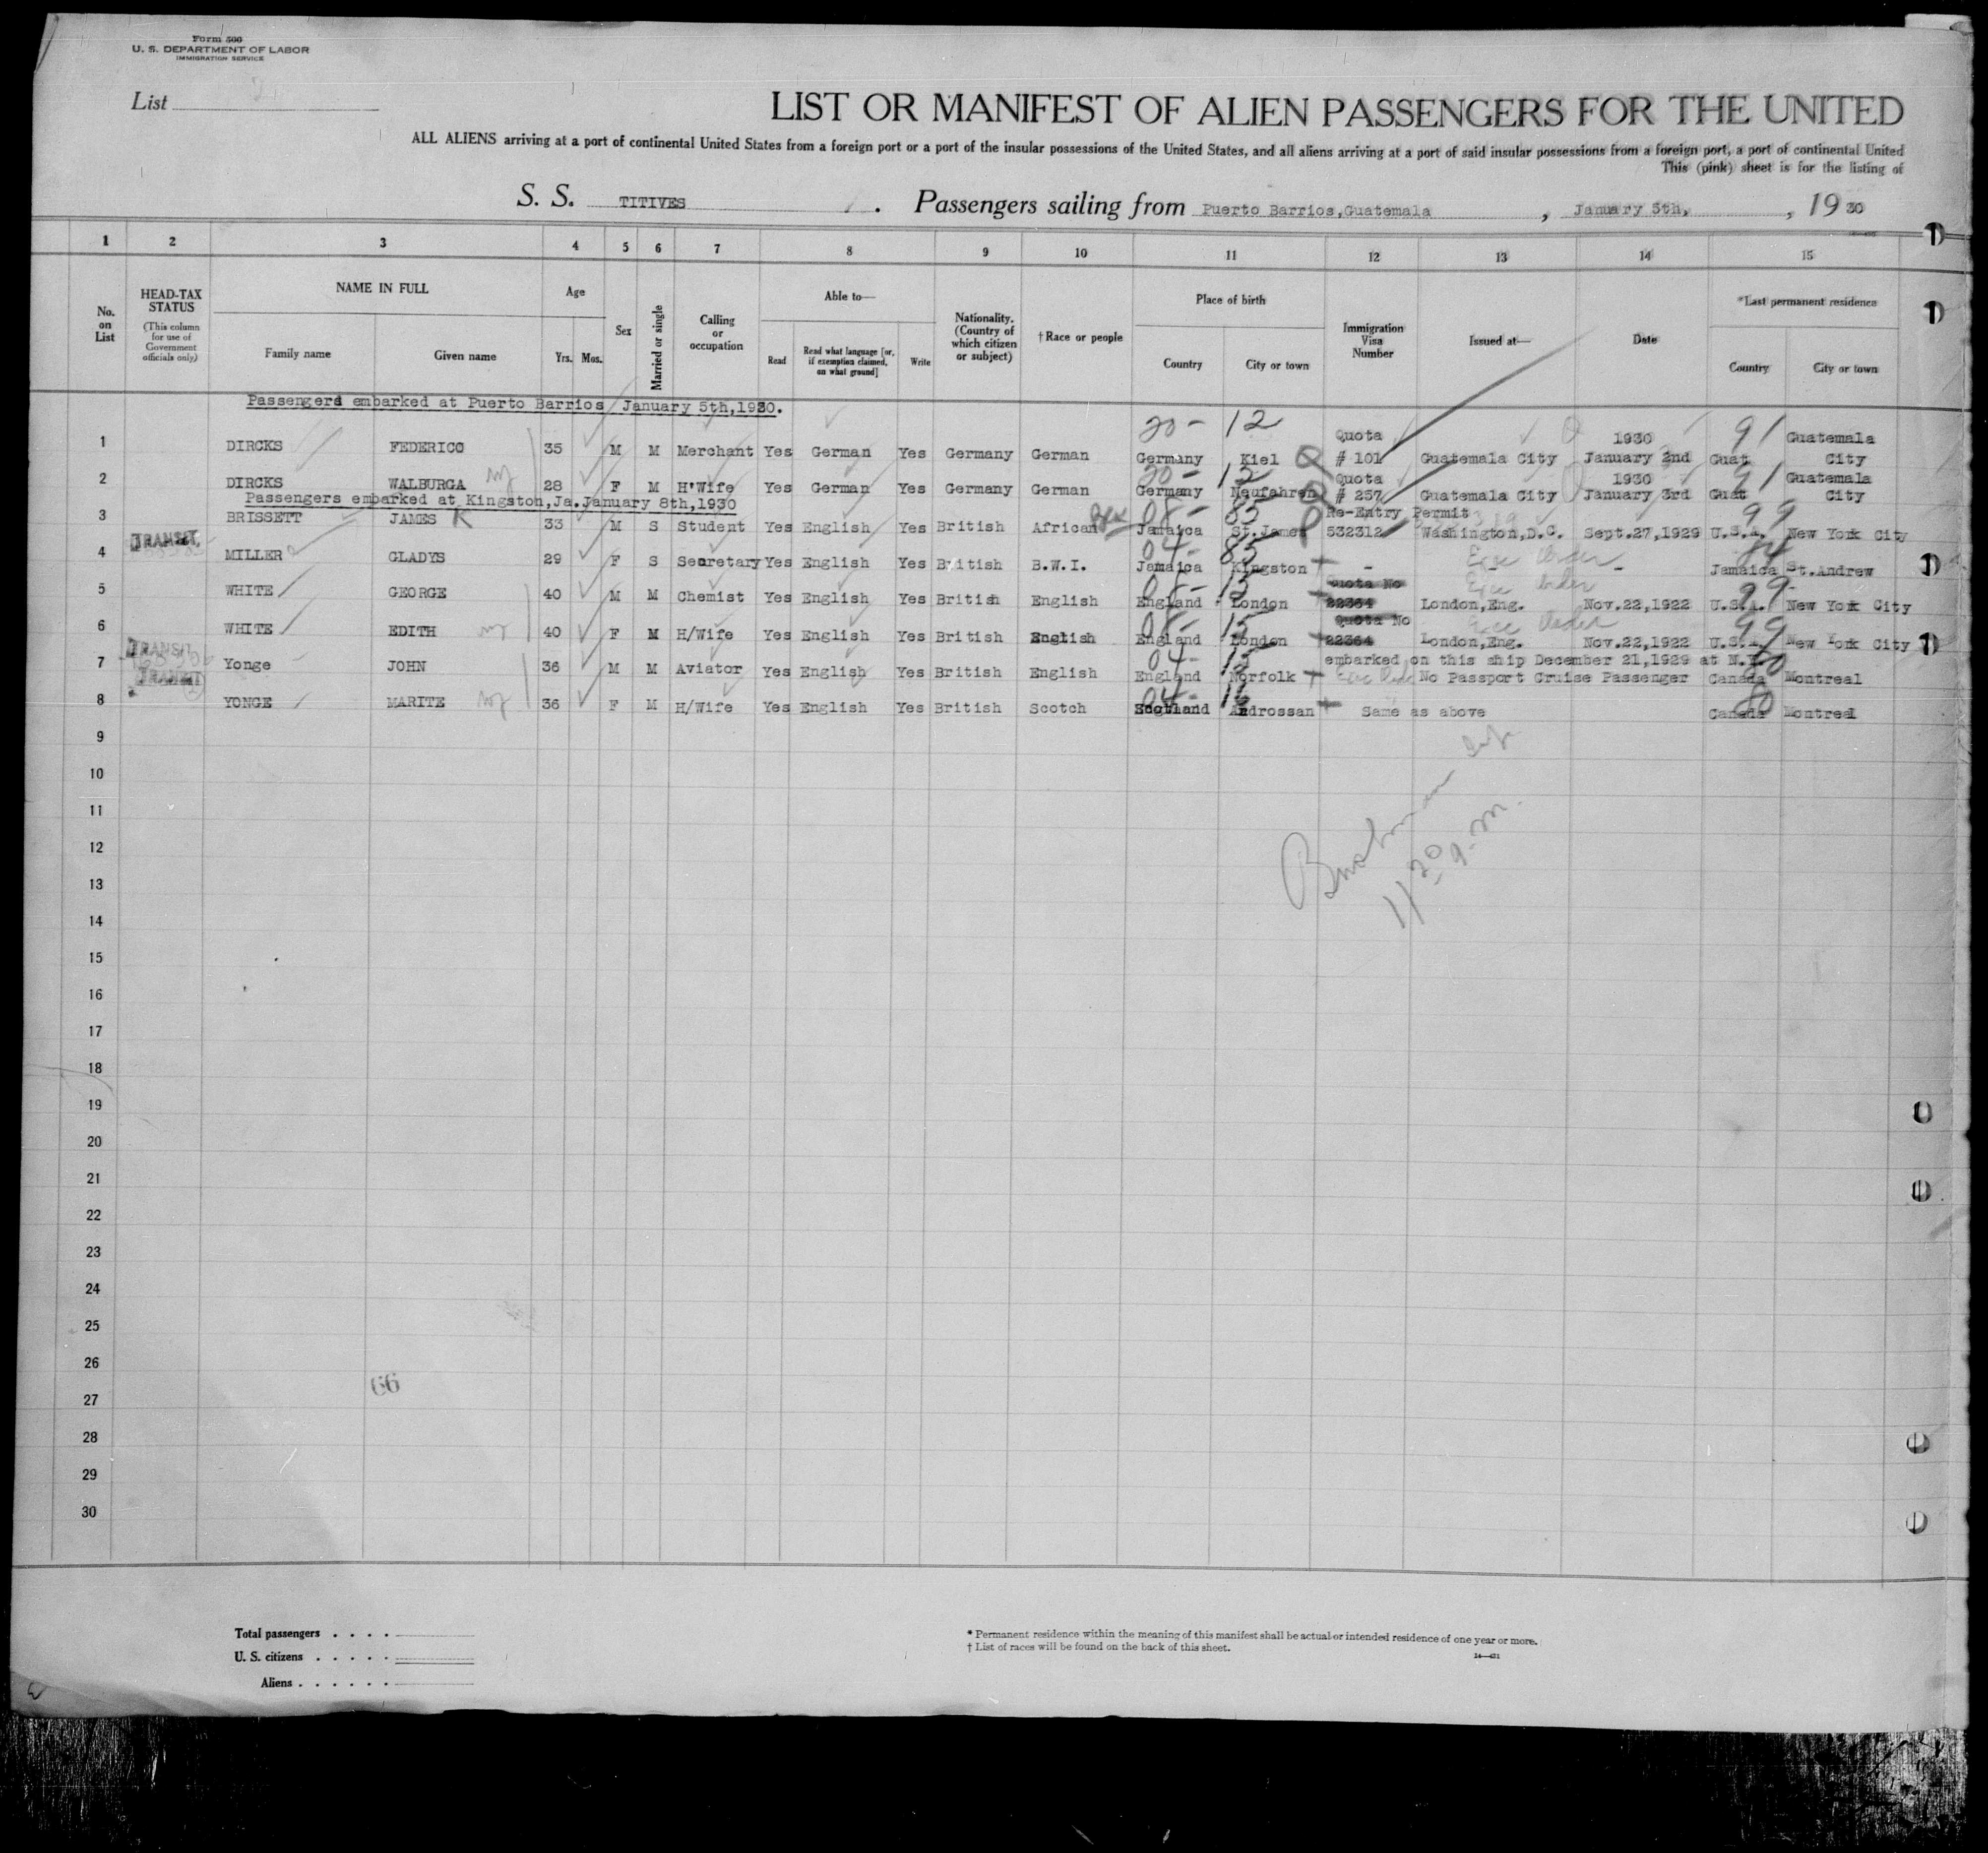 Form 500
U. S. DEPARTMENT OF LABOR
IMMIGRATION SERVICE
List
LIST OR MANIFEST OF ALIEN PASSENGERS FOR THE UNITED
ALL ALIENS arriving at a port of continental United States from a foreign port or a port of the insular possessions of the United States, and all aliens arriving at a port of said insular possessions from a foreign port, a port of continental United
This (pink) sheet is for the listing of
S. S. TITIVES . Passengers sailing from Puerto Barrios,Guatemala , January 5th, , 19 30
1 2 3 4 5 6 7 8 9 10 11 12 13 14 15
No. on List
HEAD-TAX STATUS
(This column for use of Government officials only)
NAME IN FULL
Family name Given name
Age
Yrs. Mos.
Sex
Married or single
Calling or occupation
Able to—
Read Read what language [or, if exemption claimed, on what ground] Write
Nationality. (Country of which citizen or subject)
†Race or people
Place of birth
Country City or town
Immigration Visa Number
Issued at—
Date
*Last permanent residence
Country City or town
Passengers embarked at Puerto Barrios January 5th,1930.
20- 12
Quota 1930 91 Guatemala
1 DIRCKS FEDERICO 35 M M Merchant Yes German Yes Germany German Germany Kiel # 101 Guatemala City January 2nd Guat City
20- 12 Quota 1930 91 Guatemala
2 DIRCKS WALBURGA 28 F M H'Wife Yes German Yes Germany German Germany Neufahren # 257 Guatemala City January 3rd Guat City
Passengers embarked at Kingston,Ja.January 8th,1930
85 Re-Entry Permit 99
3 BRISSETT JAMES K 33 M S Student Yes English Yes British African Blk Jamaica St.James 532312 Washington,D.C. Sept.27,1929 U.S.A. New York City
TRANSIT
04- 85
4 MILLER GLADYS 29 F S Secretary Yes English Yes British B.W.I. Jamaica Kingston - - - Jamaica St.Andrew
15 Quota No 99
5 WHITE GEORGE 40 M M Chemist Yes English Yes British English England London 22364 London,Eng. Nov.22,1922 U.S.A. New York City
15 Quota No 99
6 WHITE EDITH 40 F M H/Wife Yes English Yes British English England London 22364 London,Eng. Nov.22,1922 U.S.A. New York City
TRANSIT
04- 15 embarked on this ship December 21,1929 at N.Y. 80
7 Yonge JOHN 36 M M Aviator Yes English Yes British English England Norfolk No Passport Cruise Passenger Canada Montreal
TRANSIT
04- 16 80
8 YONGE MARITE 36 F M H/Wife Yes English Yes British Scotch Scotland Androssan Same as above Canada Montreal
9
10
11
12
Bushman
11 20 a.m.
13
14
15
16
17
18
19
20
21
22
23
24
25
26
66
27
28
29
30
Total passengers . . . .
U. S. citizens . . . . .
Aliens . . . . . .
* Permanent residence within the meaning of this manifest shall be actual or intended residence of one year or more.
† List of races will be found on the back of this sheet.